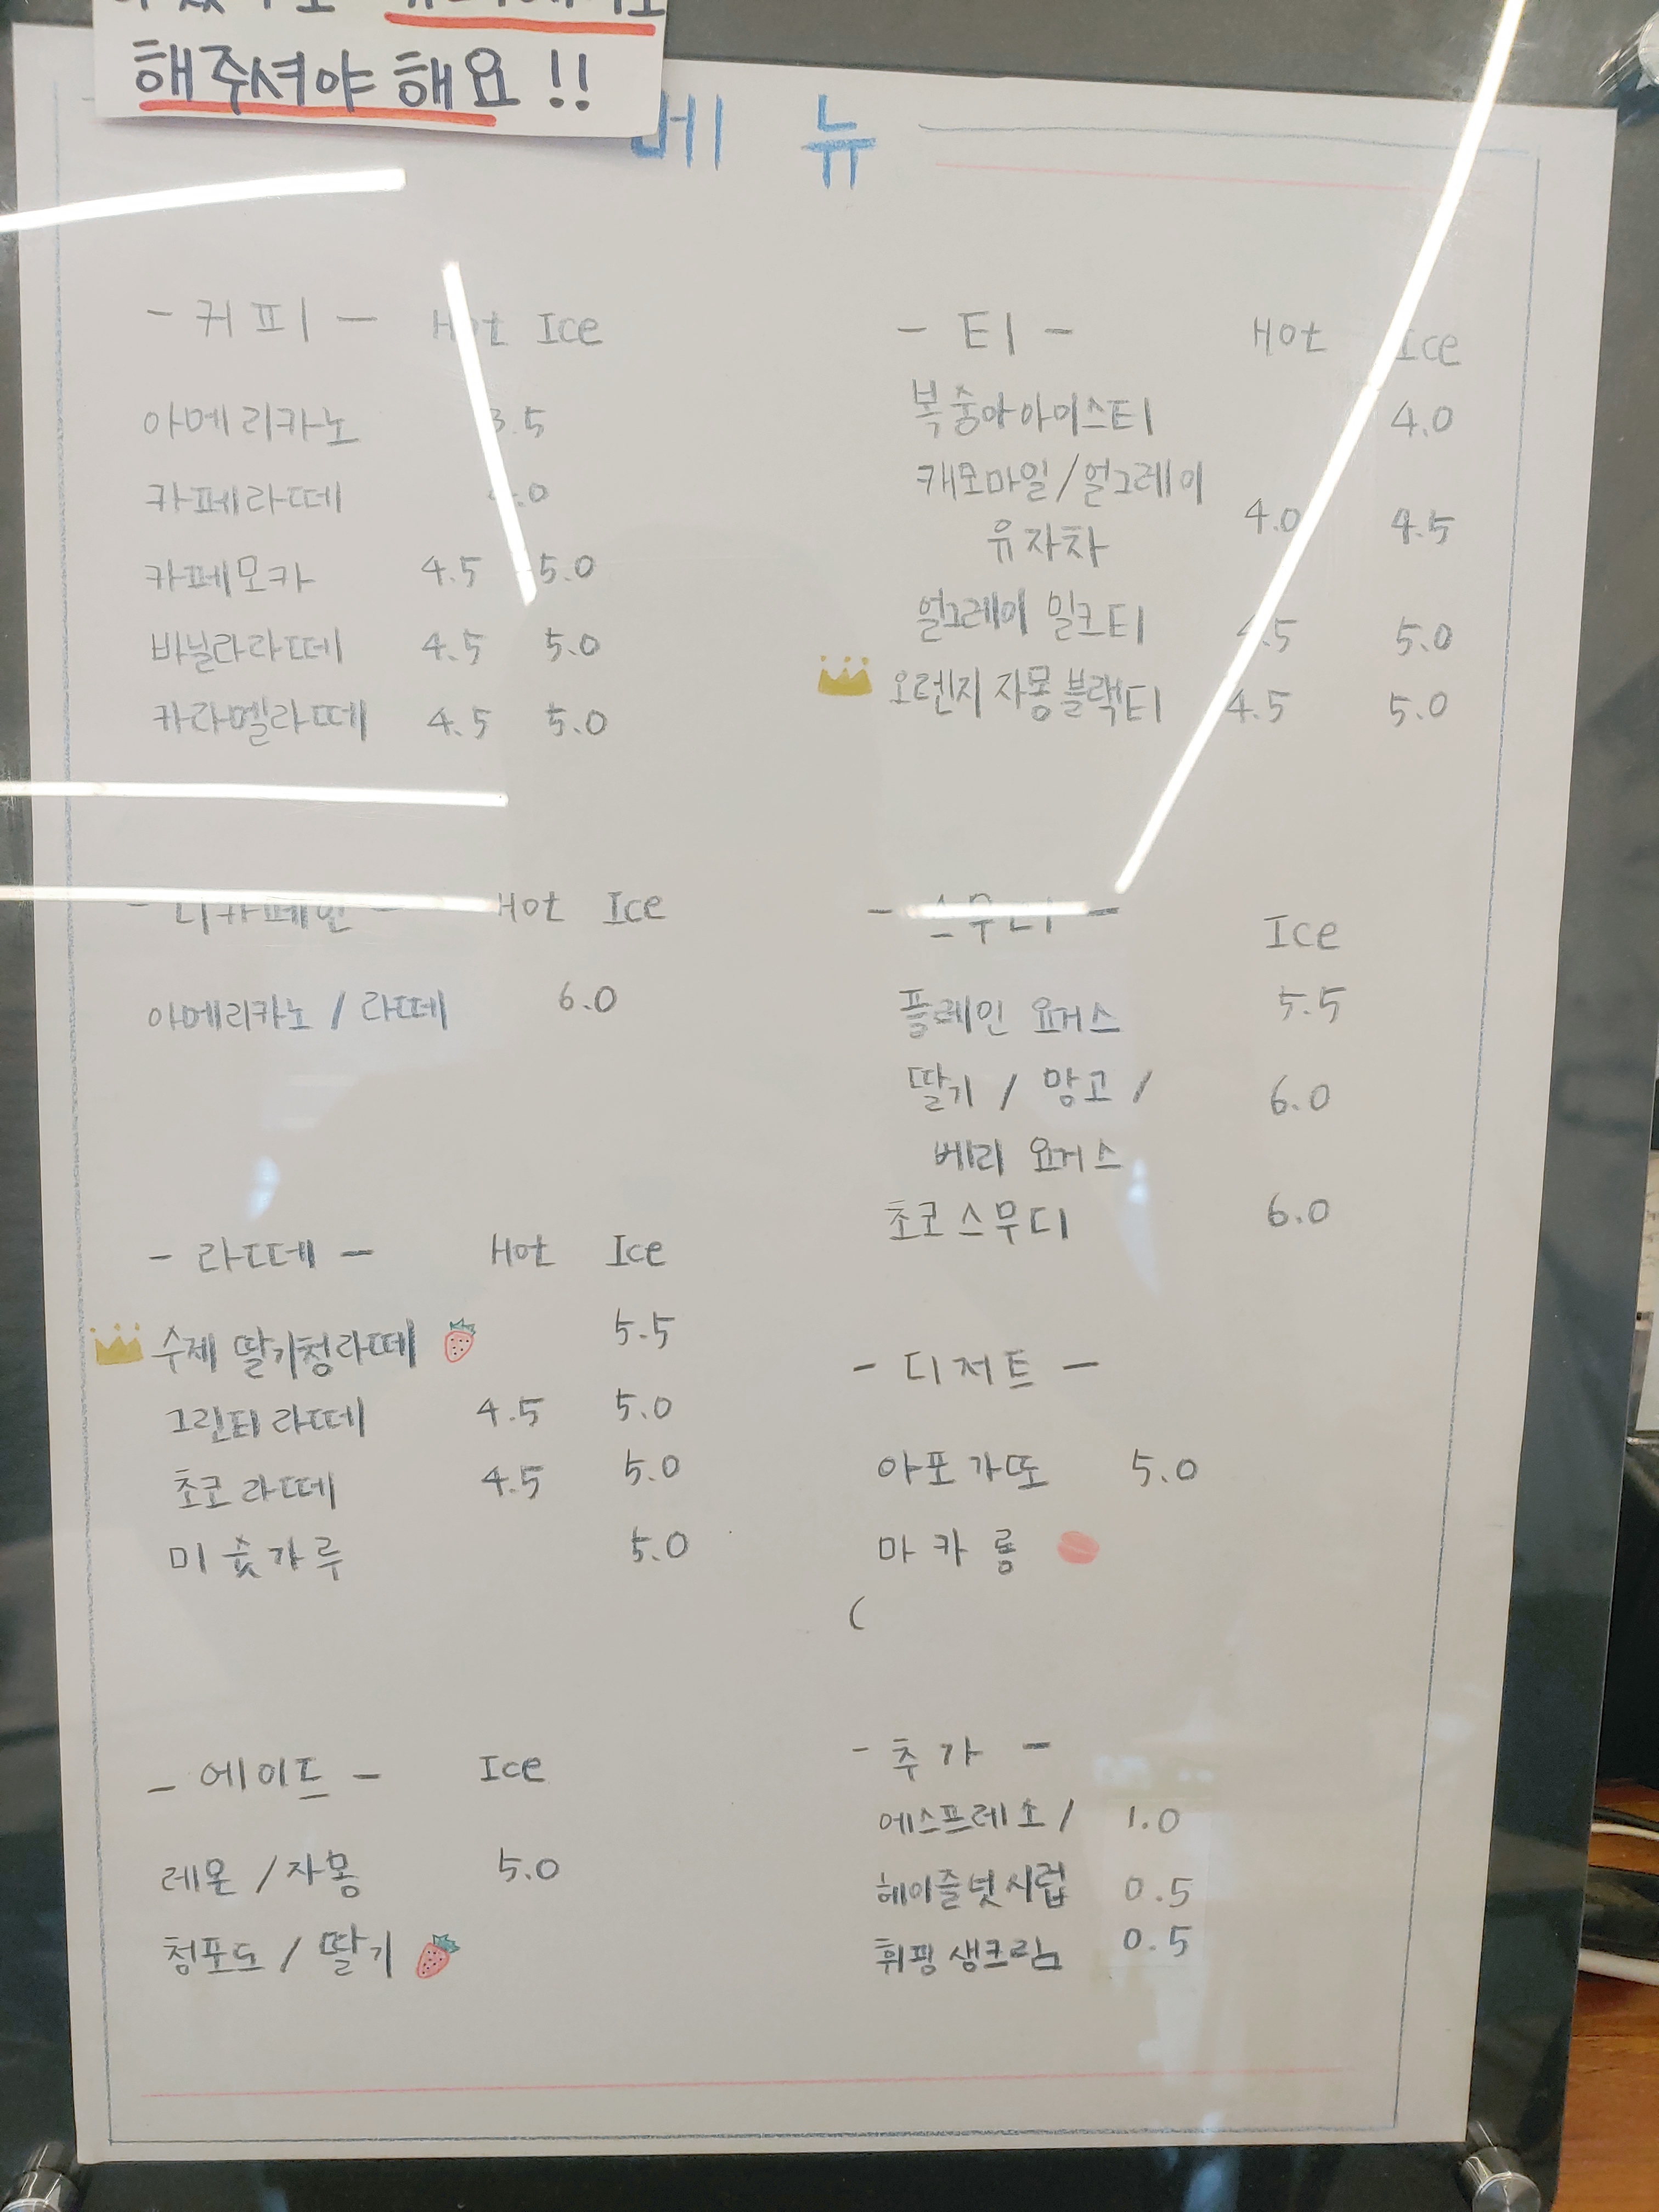 해주셔야 해요!!
메 뉴
- 커피 - Hot Ice
아메리카노 3.5
카페라떼
카페모카 4.5 5.0
바닐라라떼 4.5 5.0
카라멜라떼 4.5 5.0
- 디카페인 - Hot Ice
아메리카노 / 라떼 6.0
- 라떼 - Hot Ice
수제 딸기청라떼 5.5
그린티 라떼 4.5 5.0
초코 라떼 4.5 5.0
미숫가루 5.0
- 에이드 - Ice
레몬 / 자몽 5.0
청포도 / 딸기
- 티 - Hot Ice
복숭아아이스티 4.0
캐모마일 / 얼그레이
유자차 4.0 4.5
얼그레이 밀크티 4.5 5.0
오렌지 자몽 블랙티 4.5 5.0
- 스무디 - Ice
플레인 요거스 5.5
딸기 / 망고 / 6.0
베리 요거스
초코 스무디 6.0
- 디저트 -
아포가또 5.0
마카롱
(
- 추가 -
에스프레소 / 1.0
헤이즐넛시럽 0.5
휘핑 생크림 0.5